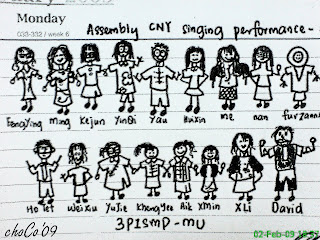 Monday
033-332 / week 6
Assembly CNY singing performance-
FongYing Ming Kejun YinQi Yau HuiXin me nan furzanne
Ho Tet WeiXiu YuJie KhengYee Aik XMin XLi David
3P1SMP-MU
choCo'09
02-Feb-09